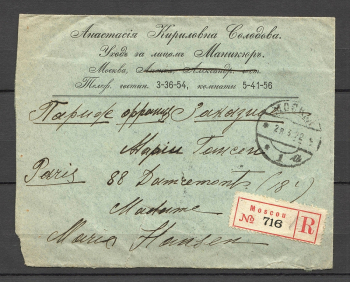 Анастасія Кириловна Солодова.
Уходъ за лицомъ Маникюръ.
Москва, Александр.
Телеф. гостин. 3-36-54, комнаты 5-41-56
Париж франція Заказно
МОСКВА
Мари Гансен
Paris 88 Damremont (18e)
Madame
Marie Hansen
Moscou
№ 716
R